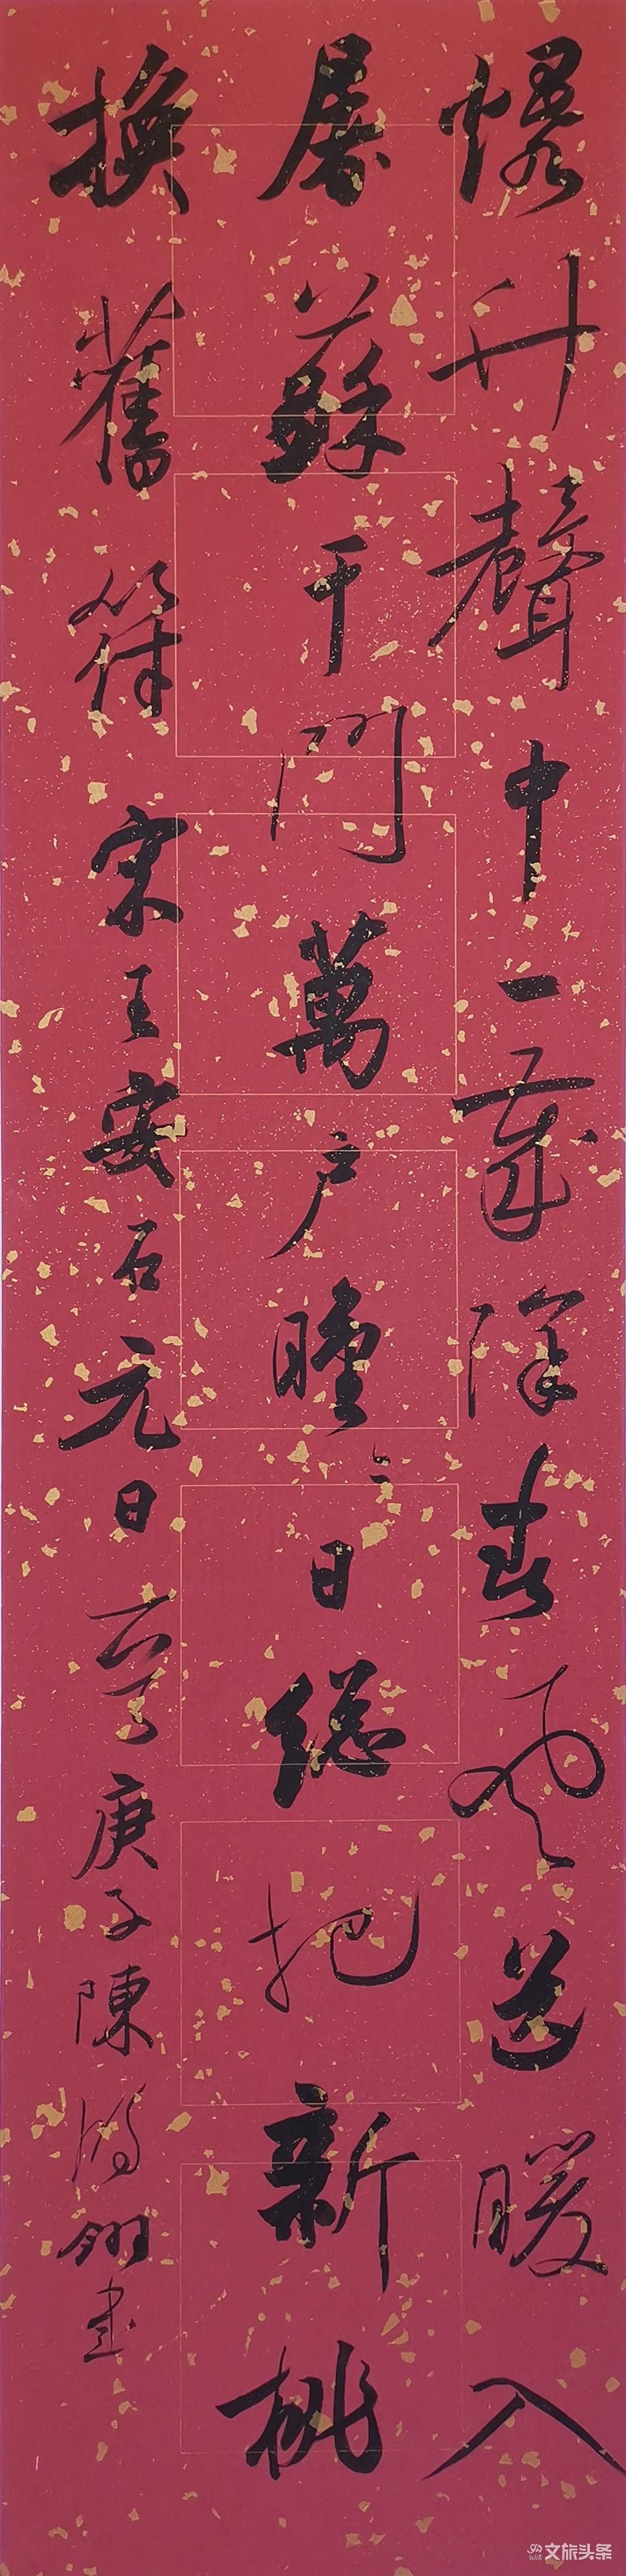 爆竹聲中一歲除春風送暖入
屠蘇千門萬戶曈〻日總把新桃
換舊符宋王安石元日庚子陳翎書
文旅头条